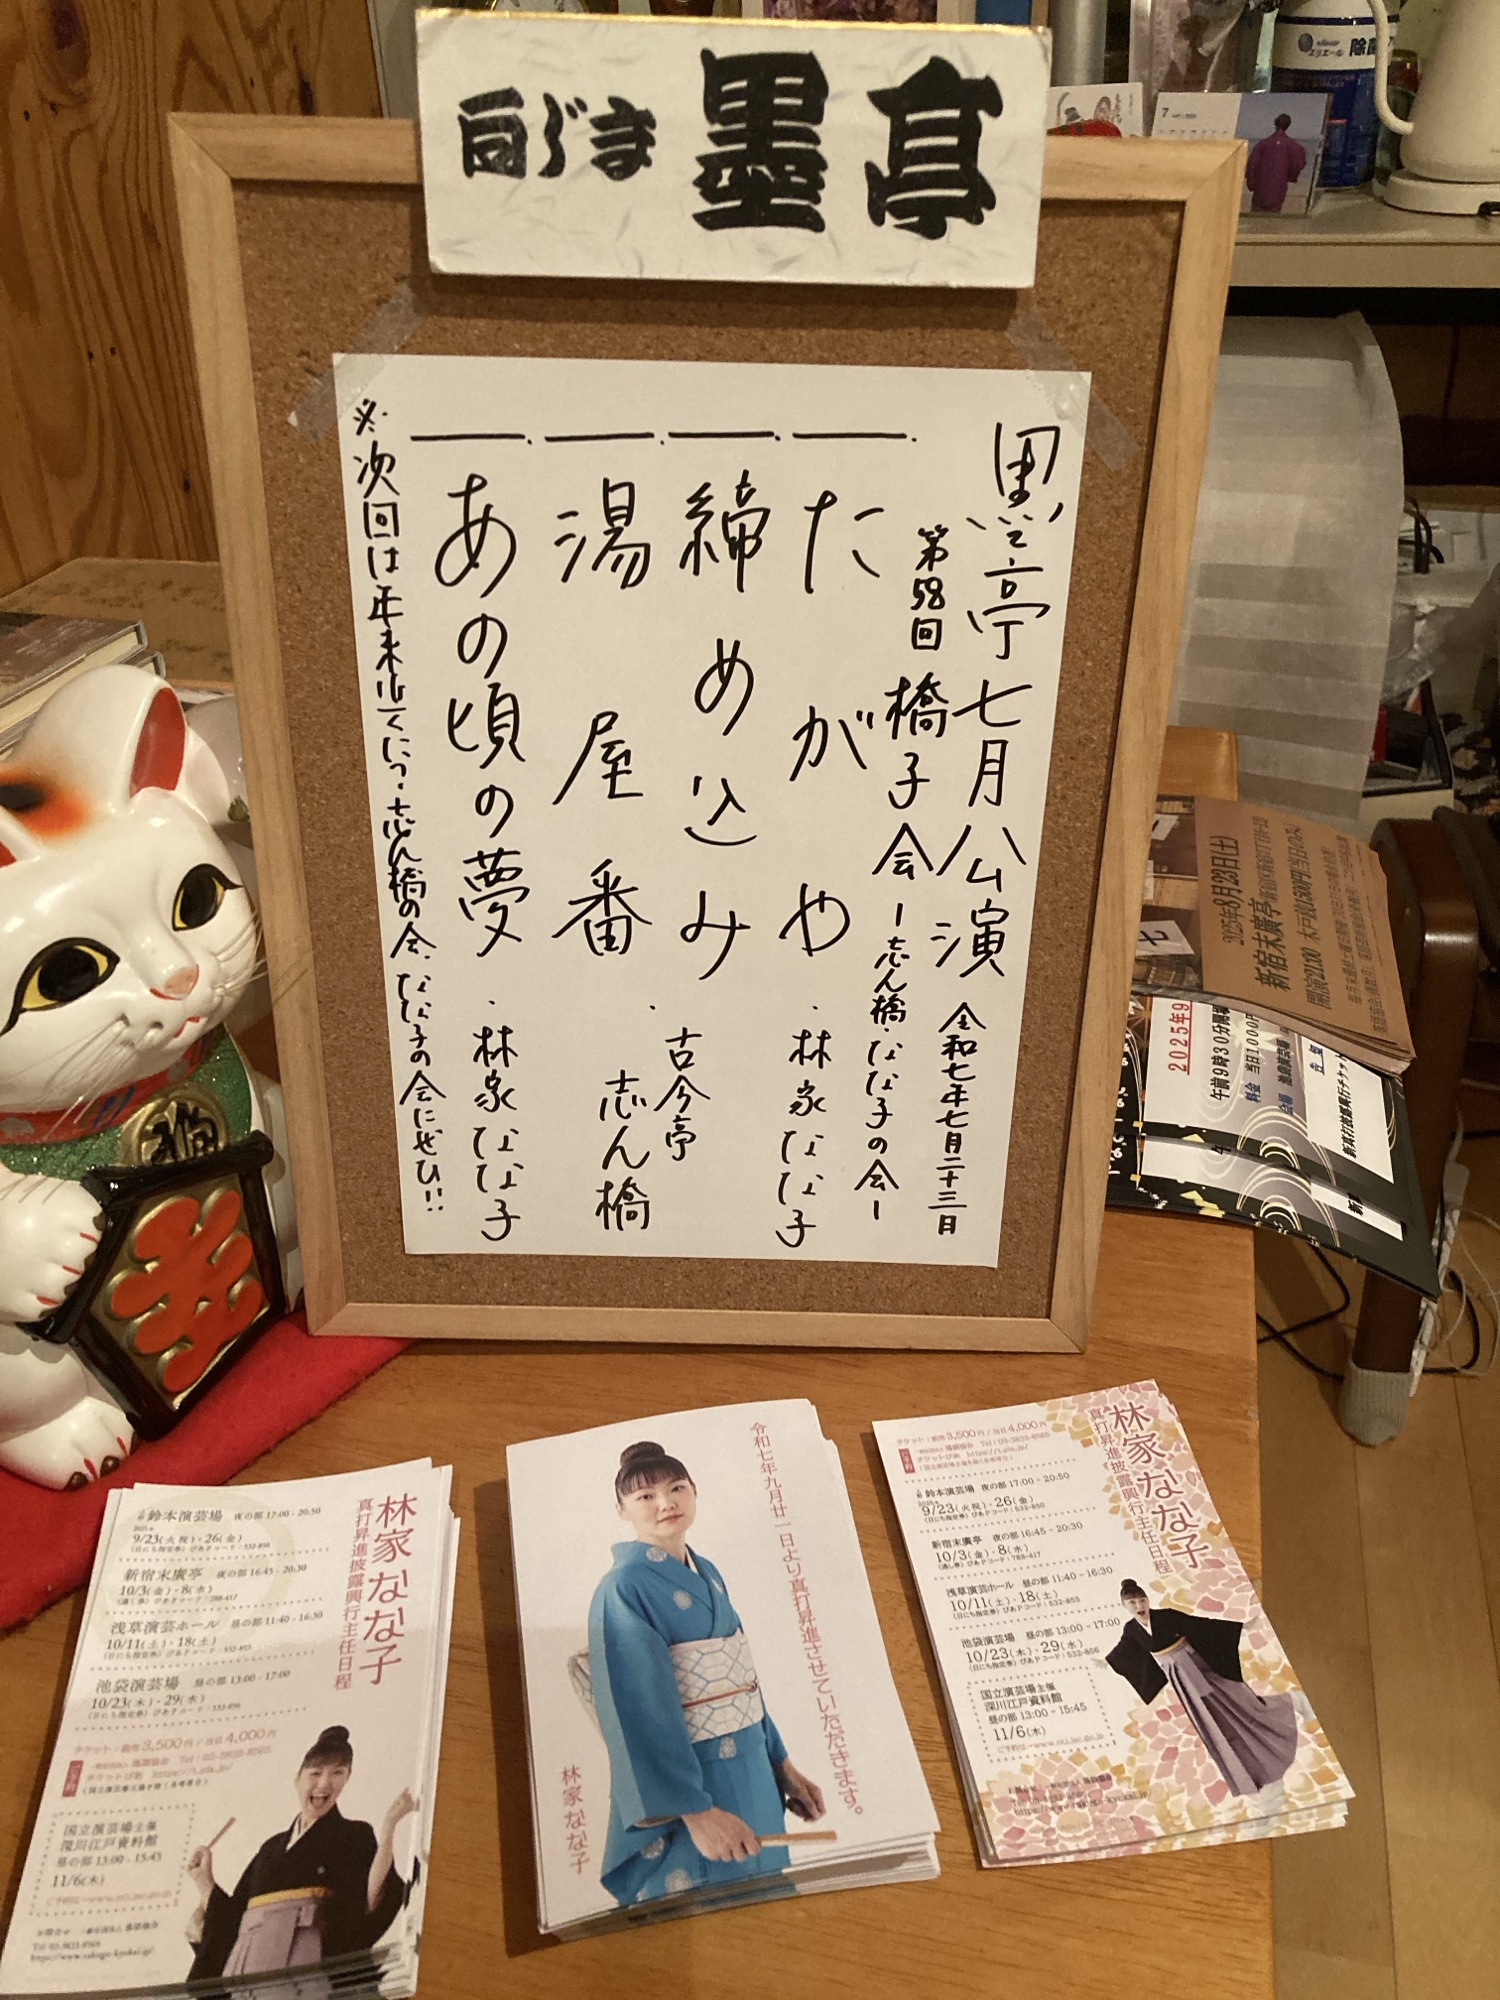 墨亭
墨亭七月公演 令和七年七月二十三日
第58回 橋子会 ー志ん橋・なな子の会ー
一. たがや ・林家なな子
一. 締め込み
一. 湯屋番 ・古今亭志ん橋
一. あの頃の夢 ・林家なな子
※次回は年末近くに、志ん橋の会、なな子の会にぜひ!!
除菌
エリエール
7
2025年8月23日(土)
新宿末廣亭
開演21:00
2025年9
午前9時30分開場
料金 当日1000円
林家なな子
真打昇進披露興行主任日程
鈴本演芸場 夜の部 17:00 - 20:50
9/23(火祝)・26(金)
新宿末廣亭 夜の部 16:45 - 20:30
10/3(金)・8(水)
浅草演芸ホール 昼の部 11:40 - 16:30
10/11(土)・18(土)
池袋演芸場 昼の部 13:00 - 17:00
10/23(木)・29(水)
チケット:前売3,500円/当日4,000円
国立演芸場主催
深川江戸資料館
昼の部 13:00 - 15:45
11/6(木)
令和七年九月廿一日より真打昇進させていただきます。
林家なな子
林家なな子
真打昇進披露興行主任日程
チケット:前売3,500円/当日4,000円
鈴本演芸場 夜の部 17:00 - 20:50
9/23(火祝)・26(金)
新宿末廣亭 夜の部 16:45 - 20:30
10/3(金)・8(水)
浅草演芸ホール 昼の部 11:40 - 16:30
10/11(土)・18(土)
池袋演芸場 昼の部 13:00 - 17:00
10/23(木)・29(水)
国立演芸場主催
深川江戸資料館
昼の部 13:00 - 15:45
11/6(木)